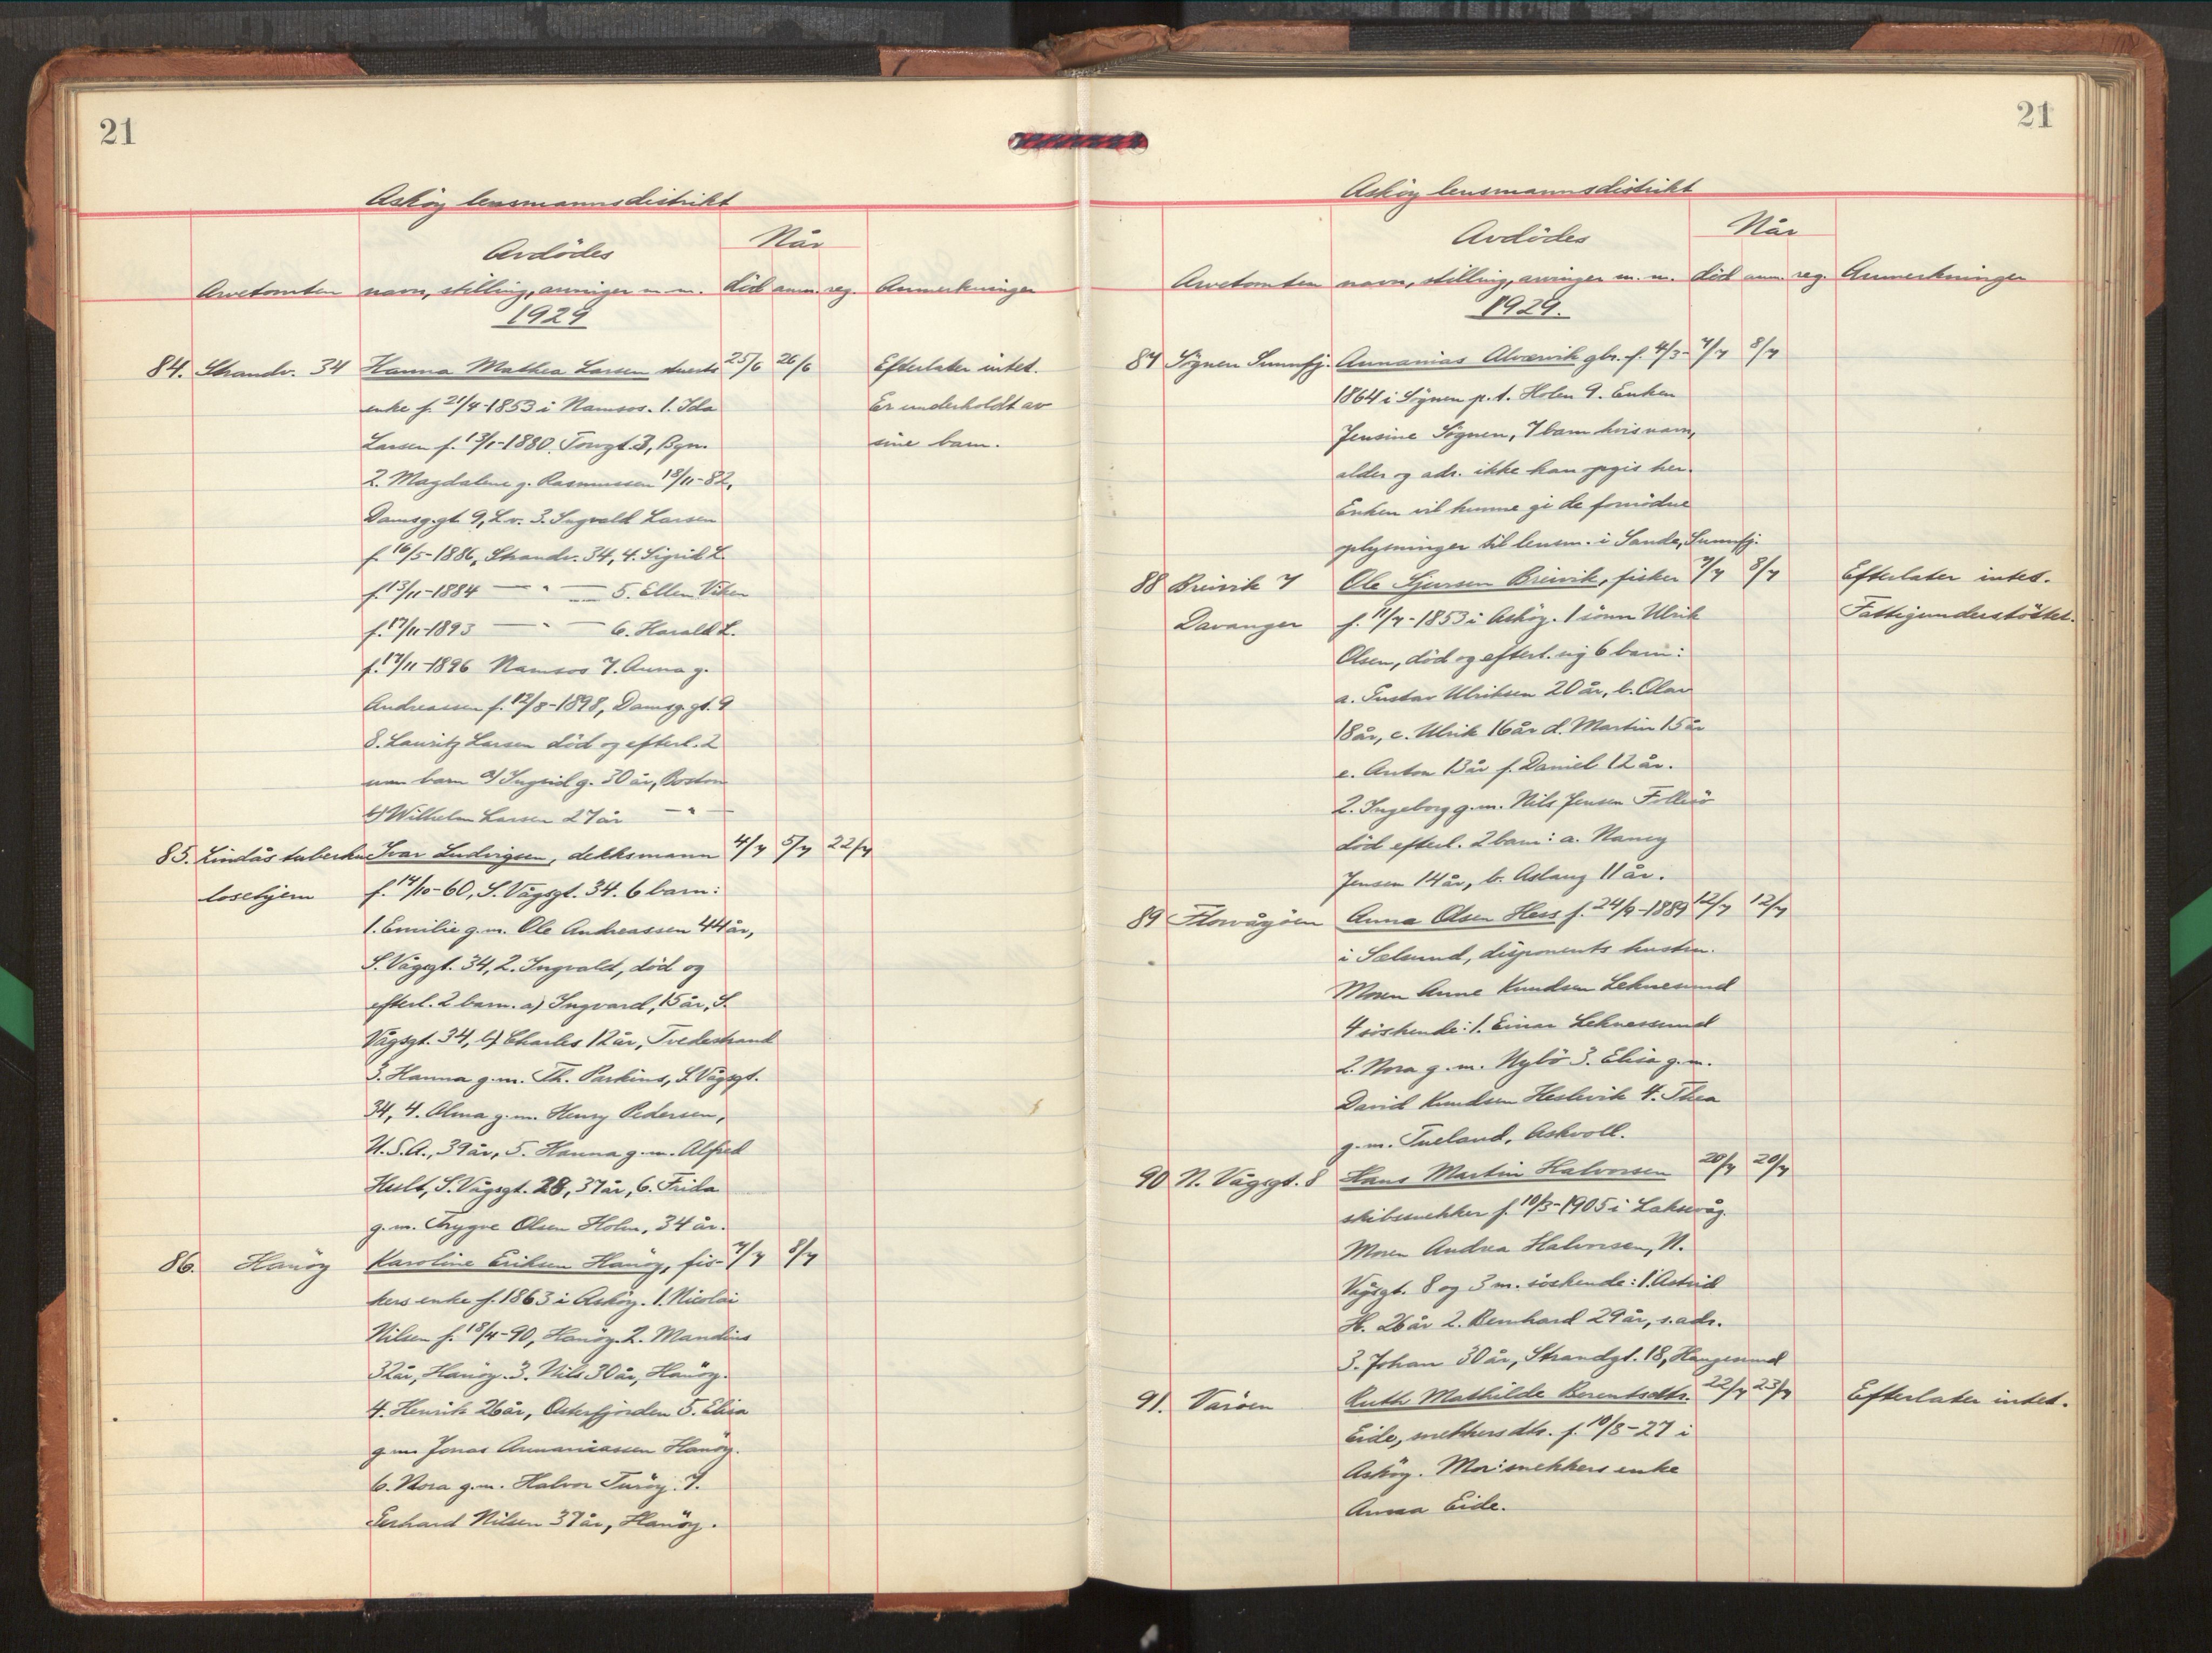 21
Askøy lensmannsdistrikt
Avdödes
Når
Arvetomten navn, stilling, arvinger m. m. död anm. reg. Anmerkninger
1929
84. Strandv. 34 Hanna Mathea Larsen stuerts 25/6 26/6 Efterlater intet.
enke f. 21/4-1853 i Namsos. 1. Ida Er underholdt av
Larsen f. 13/1-1880, Torvgt. 3, Bgn. sine barn.
2. Magdalene g. Rasmussen 18/11-82,
Damsg.gt. 9, L.v. 3. Ingvald Larsen
f. 16/5-1886, Strandv. 34, 4. Sigrid L.
f. 13/11-1884 — " — 5. Ellen Viken
f. 17/11-1893 — " — 6. Harald L.
f. 17/11-1896 Namsos 7. Anna g.
Andreassen f. 12/8-1898, Damsg.gt. 9
8. Lauritz Larsen död og efterl. 2
barn a) Ingrid g. 30 år, Boston
b) Wilhelm Larsen 27 år — " —
85. Lindås tuberku Ivar Ludvigsen, dekksmann 4/7 5/7 22/7
losehjem f. 14/10-60, S. Vågsgt. 34. 6 barn:
1. Emilie g.m. Ole Andreassen 44 år,
S. Vågsgt. 34, 2. Ingvald, död og
efterl. 2 barn. a) Ingvard, 15 år, S.
Vågsgt. 34, b) Charles 12 år, Tvedestrand
3. Hanna g.m. Th. Parkins, S. Vågsgt.
34, 4. Olma g.m. Henry Pedersen,
U.S.A., 39 år, 5. Hanna g.m. Alfred
Hult, S. Vågsgt. 28, 37 år, 6. Frida
g.m. Trygve Olsen Holm, 34 år.
86. Hanöy Karoline Eriksen Hanöy, fis- 7/7 8/7
kers enke f. 1863 i Asköy. 1. Nicolai
Nilsen f. 18/4-90, Hanöy. 2. Mandius
32 år, Hanöy. 3. Nils 30 år, Hanöy.
4. Henrik 26 år, Osterfjorden 5. Elisa
g.m. Jonas Annaniassen Hanöy.
6. Nora g.m. Halvor Turöy. 7.
Gerhard Nilsen 37 år, Hanöy.
21
Askøy lensmannsdistrikt
Avdödes
Når
Arvetomten navn, stilling, arvinger m. m. död anm. reg. Anmerkninger
1929.
87 Sögnen Sunnfj. Annanias Alværvik gbr. f. 4/3- 7/7 8/7
1864 i Sögnen p.t. Holen 9. Enken
Jensine Sögnen, 7 barn hvis navn,
alder og adr. ikke kan opgis her.
Enken vil kunne gi de fornödne
oplysninger til lensm. i Sande, Sunnfj.
88 Breivik 7 Ole Sjursen Breivik, fisker 7/7 8/7 Efterlater intet.
Davanger f. 11/7-1853 i Asköy. 1 sönn Ulrik Fattigunderstöttet.
Olsen, död og efterl. sig 6 barn:
a. Gustav Ulriksen 20 år, b. Olav
18 år, c. Ulrik 16 år d. Martin 15 år
e. Anton 13 år f. Daniel 12 år.
2. Ingeborg g.m. Nils Jensen Follesö
död efterl. 2 barn: a. Nancy
Jensen 14 år, b. Aslaug 11 år.
89 Florvågöen Anna Olsen Hess f. 24/9-1889 12/7 12/7
i Sælsund, disponents hustru.
Moren Anne Knudsen Lehnesund
4 söskende: 1. Einar Lehnesund
2. Nora g.m. Nybö 3. Elisa g.m.
David Knudsen Heslevik 4. Thea
g.m. Tueland, Askvoll.
90 N. Vågsgt. 8 Hans Martin Halvorsen 20/7 20/7
skibssnekker f. 10/3-1905 i Laksevåg.
Moren Andrea Halvorsen, N.
Vågsgt. 8 og 3 m. söskende: 1. Astrid
H. 26 år 2. Bernhard 29 år, s. adr.
3. Johan 30 år, Strandgt. 18, Haugesund
91. Varöen Ruth Mathilde Berentsdtr. 22/7 23/7 Efterlater intet.
Eide, snekkersdtr. f. 10/8-27 i
Asköy. Mor: snekkers enke
Anna Eide.